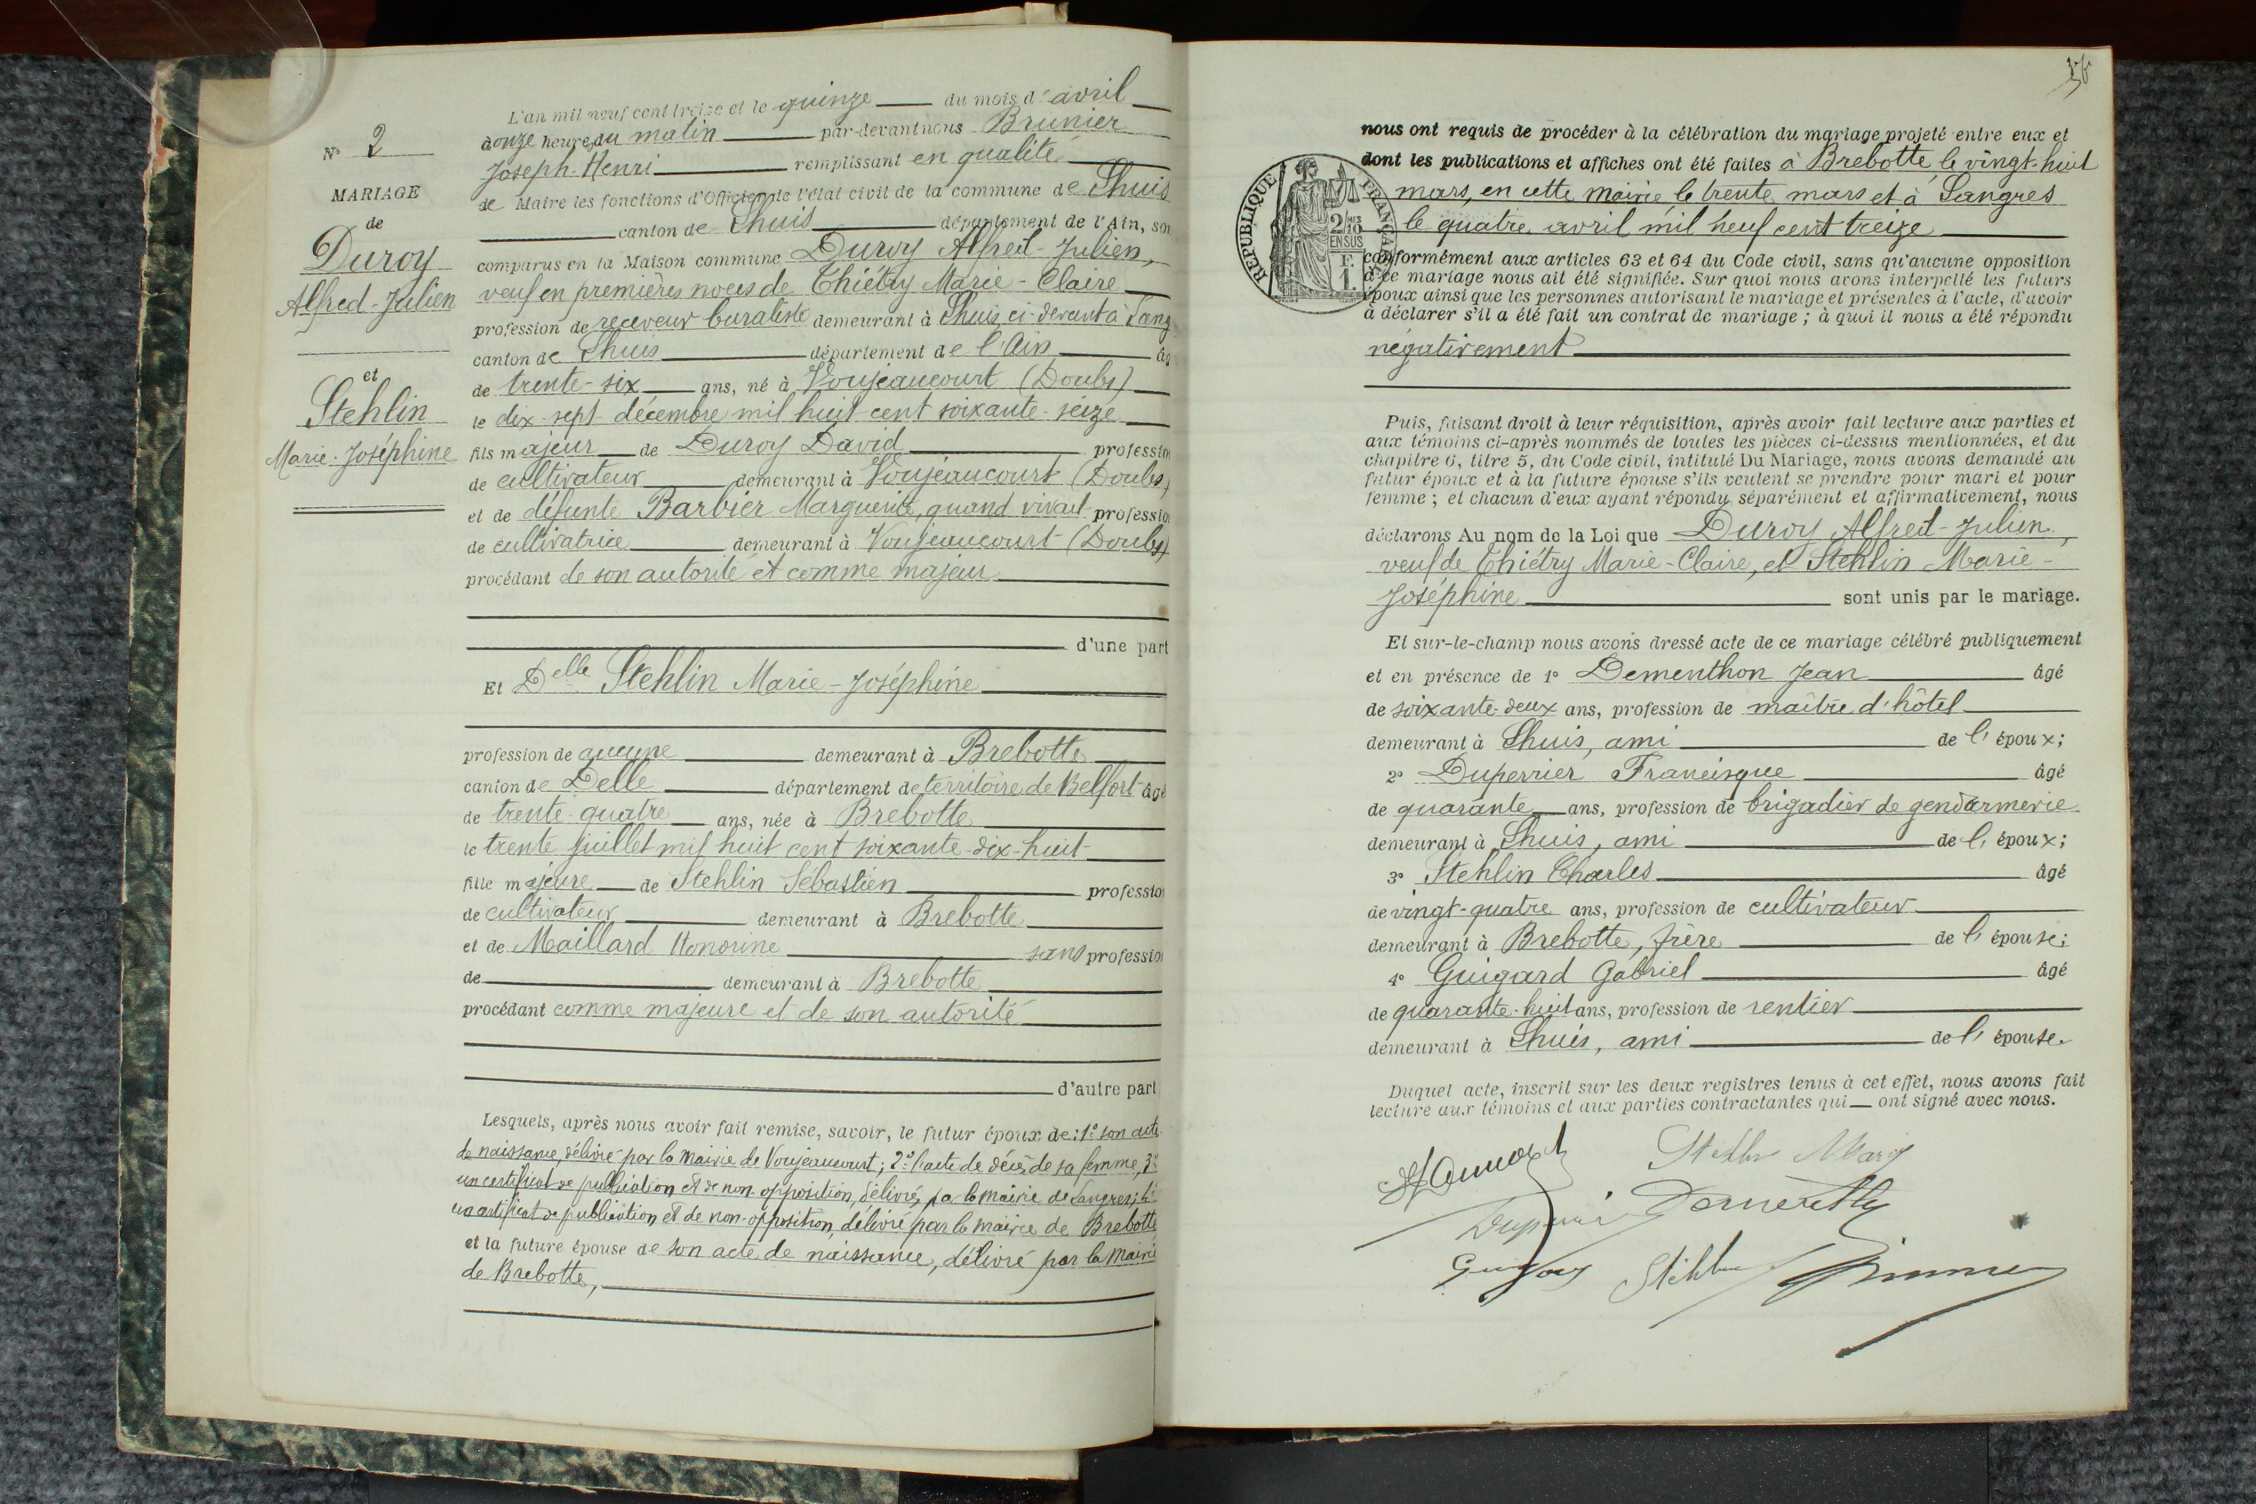 Nº 2
MARIAGE
de
Duroy
Alfred-Julien
et
Stehlin
Marie-Joséphine
L'an mil neuf cent treize et le quinze du mois d'avril
douze heures du matin par-devant nous Brunier
Joseph-Henri remplissant en qualité
de Maire les fonctions d'Officier de l'état civil de la commune de Lhuis
canton de Lhuis département de l'Ain, son
comparus en la Maison commune Duroy Alfred-Julien,
veuf en premières noces de Thiétry Marie-Claire
profession de receveur buraliste demeurant à Lhuis ci-devant à Lang
canton de Lhuis département de l'Ain âg
de trente-six ans, né à Voujeaucourt (Doubs)
le dix-sept décembre mil huit cent soixante-seize
fils majeur de Duroy David profession
de cultivateur demeurant à Voujeaucourt (Doubs)
et de défunte Barbier Marguerite, quand vivait profession
de cultivatrice demeurant à Voujeaucourt (Doubs)
procédant de son autorité et comme majeur
d'une part
Et Delle Stehlin Marie-Joséphine
profession de aucune demeurant à Brebotte
canton de Delle département de territoire de Belfort âgé
de trente-quatre ans, née à Brebotte
le trente juillet mil huit cent soixante-dix-huit
fille majeure de Stehlin Sébastien profession
de cultivateur demeurant à Brebotte
et de Maillard Honorine sans profession
de demeurant à Brebotte
procédant comme majeure et de son autorité
d'autre part
Lesquels, après nous avoir fait remise, savoir, le futur époux de: 1º son acte
de naissance, délivré par la mairie de Voujeaucourt; 2º l'acte de décès de sa femme, 3º
un certificat de publication et de non-opposition, délivrés par la mairie de Langres; 4º
un certificat de publication et de non-opposition, délivré par la mairie de Brebotte
et la future épouse de son acte de naissance, délivré par la mairie
de Brebotte,
nous ont requis de procéder à la célébration du mariage projeté entre eux et
dont les publications et affiches ont été faites à Brebotte le vingt-huit
mars, en cette mairie le trente mars et à Langres
le quatre avril mil neuf cent treize
REPUBLIQUE FRANÇAISE
2/10
EN SUS
F.
1.
conformément aux articles 63 et 64 du Code civil, sans qu'aucune opposition
à ce mariage nous ait été signifiée. Sur quoi nous avons interpellé les futurs
époux ainsi que les personnes autorisant le mariage et présentes à l'acte, d'avoir
à déclarer s'il a été fait un contrat de mariage ; à quoi il nous a été répondu
négativement
Puis, faisant droit à leur réquisition, après avoir fait lecture aux parties et
aux témoins ci-après nommés de toutes les pièces ci-dessus mentionnées, et du
chapitre 6, titre 5, du Code civil, intitulé Du Mariage, nous avons demandé au
futur époux et à la future épouse s'ils veulent se prendre pour mari et pour
femme ; et chacun d'eux ayant répondu séparément et affirmativement, nous
déclarons Au nom de la Loi que Duroy Alfred-Julien,
veuf de Thiétry Marie-Claire, et Stehlin Marie-
Joséphine sont unis par le mariage.
Et sur-le-champ nous avons dressé acte de ce mariage célébré publiquement
et en présence de 1º Dementhon Jean âgé
de soixante-deux ans, profession de maître d'hôtel
demeurant à Lhuis, ami de l'époux;
2º Duperrier Francisque âgé
de quarante ans, profession de brigadier de gendarmerie
demeurant à Lhuis, ami de l'époux;
3º Stehlin Charles âgé
de vingt-quatre ans, profession de cultivateur
demeurant à Brebotte, frère de l'épouse;
4º Guigard Gabriel âgé
de quarante-huit ans, profession de rentier
demeurant à Lhuis, ami de l'épouse.
Duquel acte, inscrit sur les deux registres tenus à cet effet, nous avons fait
lecture aux témoins et aux parties contractantes qui ont signé avec nous.
Stehlin Marie
Stehlin
Brunier